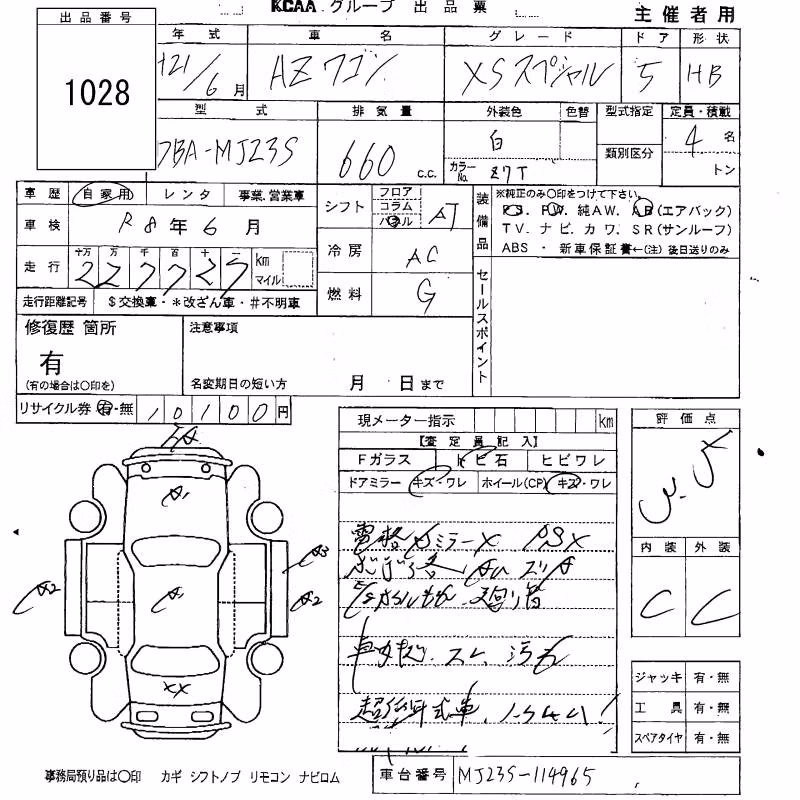 KCAA グループ 出品票
主催者用
出品番号
1028
年式 車名 グレード ドア 形状
H21/6月 AZワゴン XSスペシャル 5 HB
型式 排気量 外装色 色替 型式指定 定員・積載
DBA-MJ23S 660 c.c. 白 4名
カラーNo. Z7T 類別区分 トン
車歴 自家用 レンタ 事業.営業車
車検 R8年6月
走行 十万 万 千 百 十 一 km マイル
走行距離記号 $交換車・*改ざん車・#不明車
シフト フロア コラム パネル AT
冷房 AC
燃料 G
装備品
※純正のみ○印をつけて下さい。
PS. PW. 純AW. AB(エアバック)
TV. ナビ. カワ. SR(サンルーフ)
ABS ・ 新車保証書←(注) 後日送りのみ
セールスポイント
修復歴 箇所
有
(有の場合は○印を)
注意事項
名変期日の短い方 月 日まで
リサイクル券 有・無 10100円
現メーター指示 km
【査定員記入】
Fガラス トビ石 ヒビワレ
ドアミラー キズ・ワレ ホイール(CP) キズ・ワレ
評価点
3.5
内装 外装
C C
A1
A
XX
A2
A3
A2
ジャッキ 有・無
工具 有・無
スペアタイヤ 有・無
事務局預り品は○印 カギ シフトノブ リモコン ナビロム
車台番号 MJ23S-114965